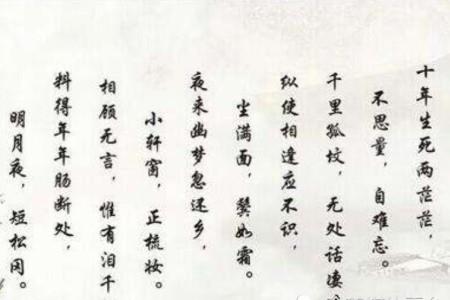 十年生死两茫茫，
不思量，自难忘。
千里孤坟，无处话凄
纵使相逢应不识，
尘满面，鬓如霜。
夜来幽梦忽还乡，
小轩窗，正梳妆。
相顾无言，惟有泪千
料得年年肠断处，
明月夜，短松冈。